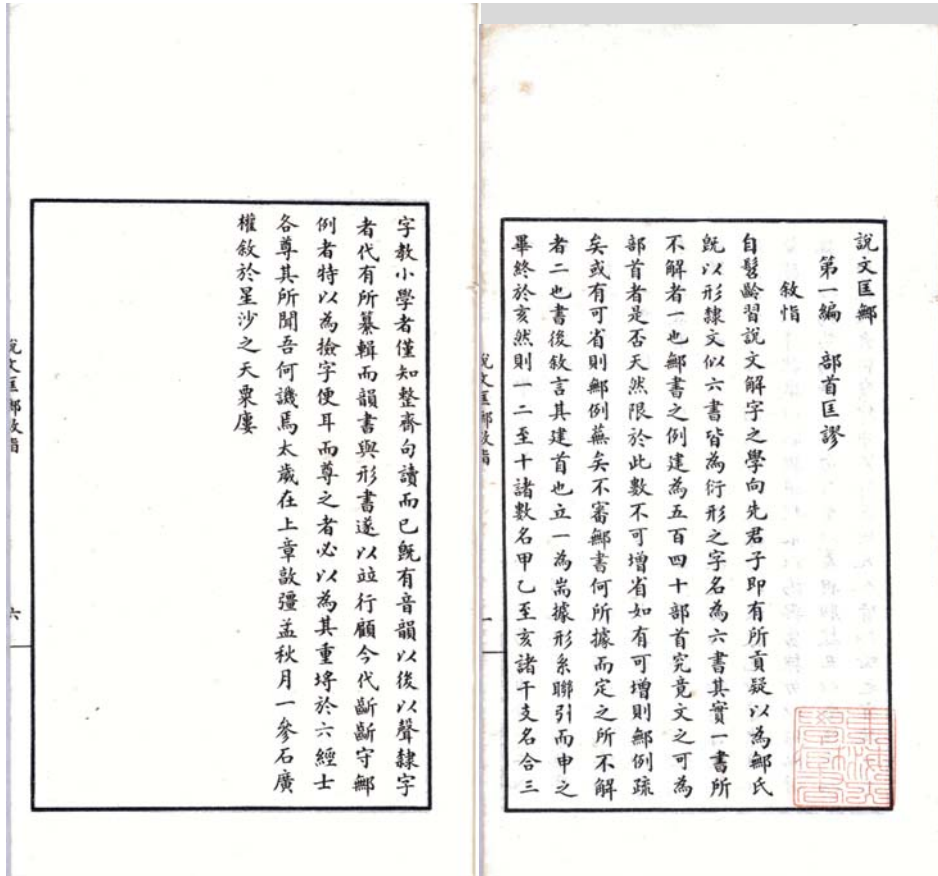 說文匡鄦
第一編 部首匡謬
敘恉
自髫齡習說文解字之學向先君子即有所貢疑以為鄦氏
既以形隸文似六書皆為衍形之字名為六書其實一書所
不解者一也鄦書之例建為五百四十部首究竟文之可為
部首者是否天然限於此數不可增省如有可增則鄦例疏
矣或有可省則鄦例蕪矣不審鄦書何所據而定之所不解
者二也書後敘言其建首也立一為耑據形系聯引而申之
畢終於亥然則一二至十諸數名甲乙至亥諸干支名合三
說文匡鄦敘恉
一
字教小學者僅知整齊句讀而已既有音韻以後以聲隸字
者代有所纂輯而韻書與形書遂以竝行顧今代齗齗守鄦
例者特以為撿字便耳而尊之者必以為其重埒於六經士
各尊其所聞吾何譏焉太歲在上章敦彊孟秋月一參石廣
權敘於星沙之天粟廔
說文匡鄦敘恉
六